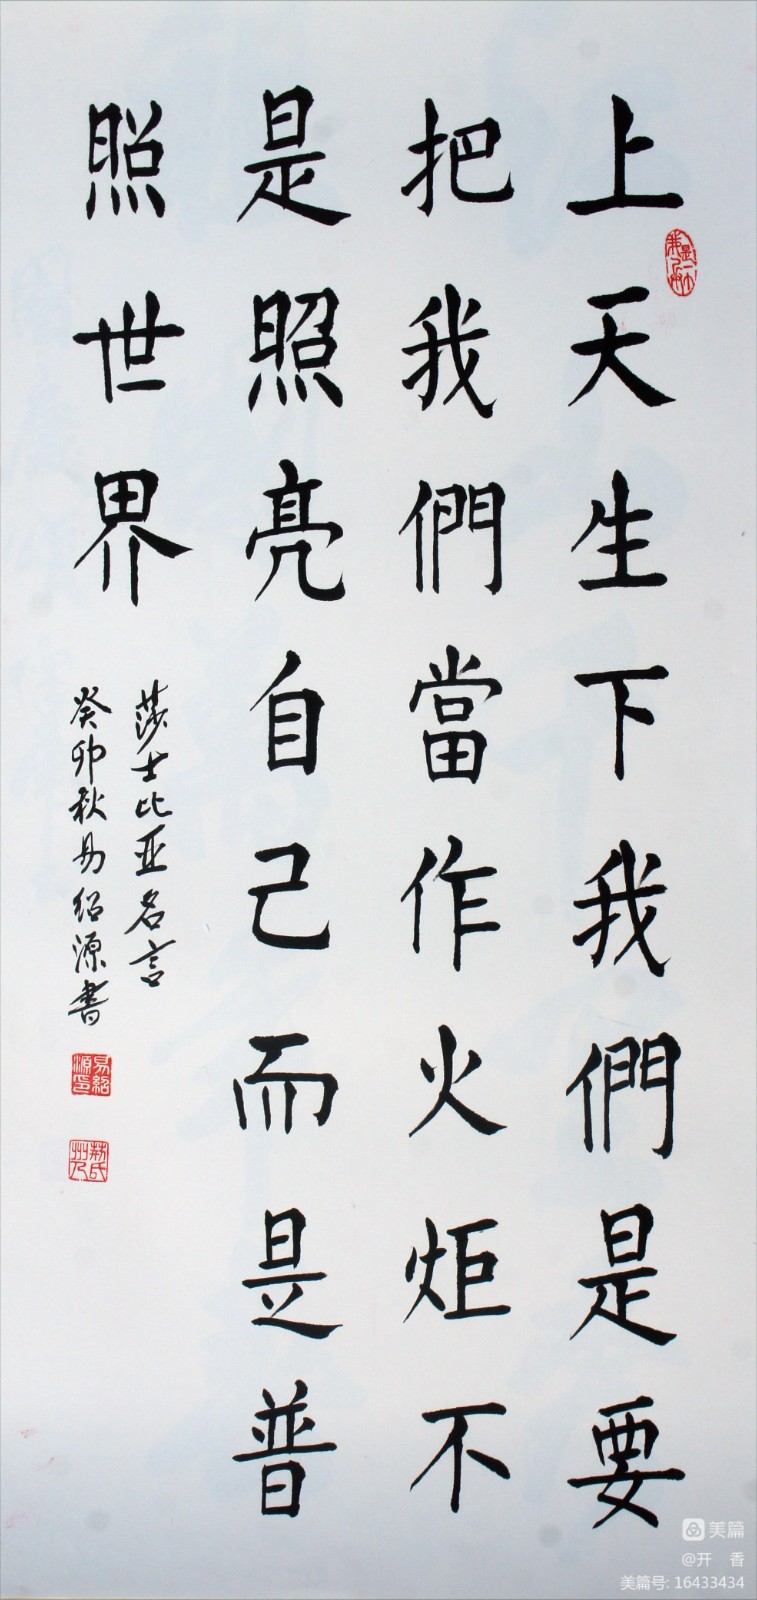 上天生下我們是要
把我們當作火炬不
是照亮自己而是普
照世界
莎士比亚名言
癸卯秋易绍源書
易紹源印
荊州乃氏
美篇
@开 香
美篇号: 16433434